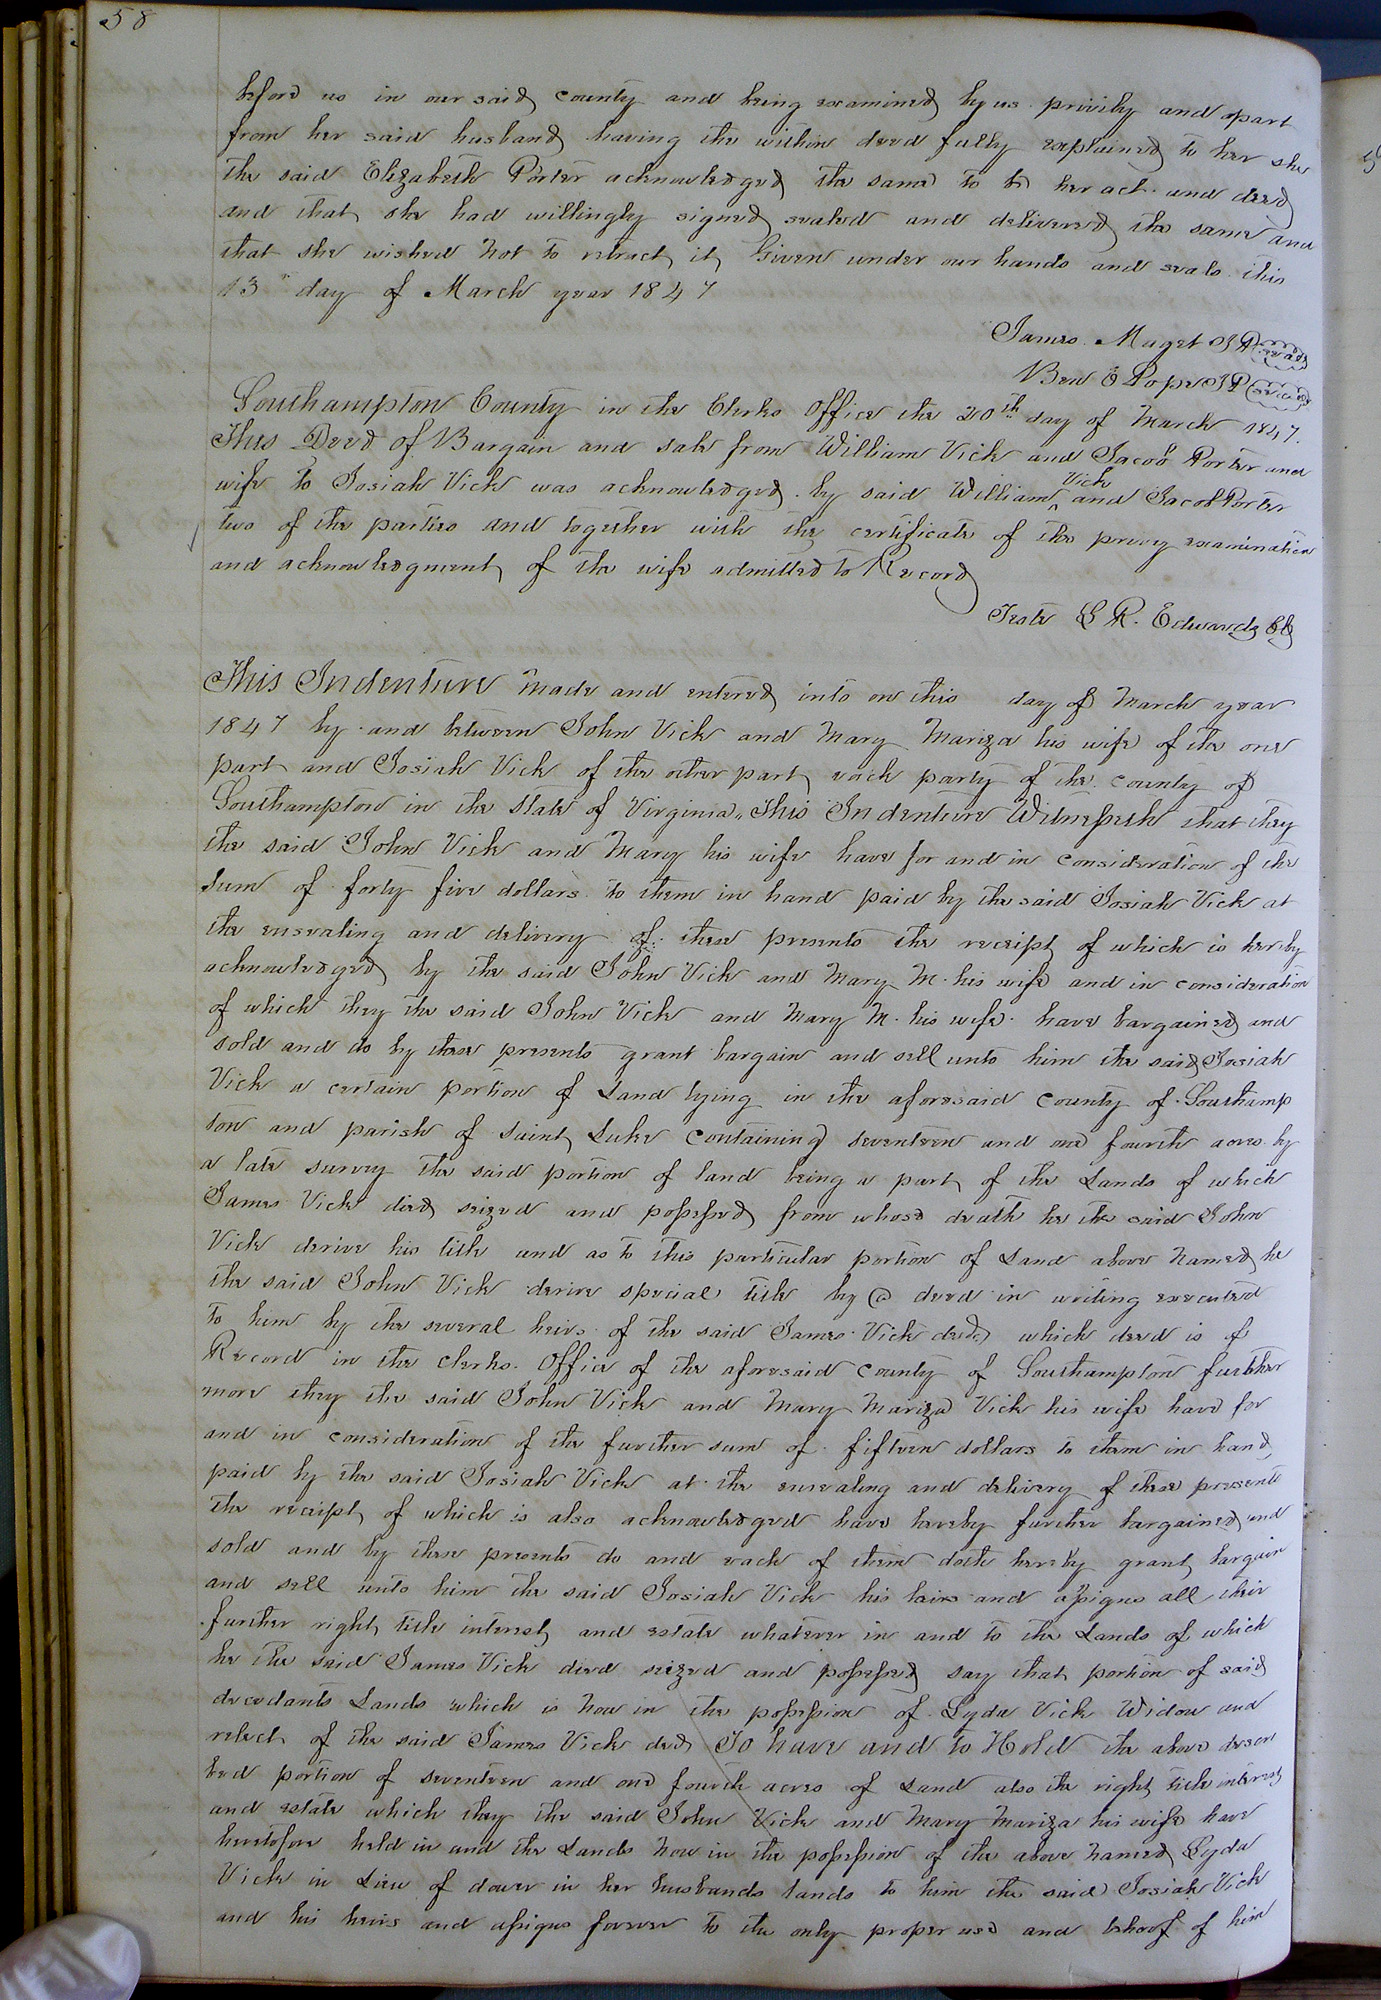 58
before us in our said county and being examined by us privily and apart
from her said husband having the within deed fully explained to her she
the said Elizabeth Porter acknowledged the same to be her act and deed
and that she had willingly signed sealed and delivered the same and
that she wished not to retract it Given under our hands and seals this
13th day of March year 1847
James Maget JP Seal
Ben E Pope JP Seal
Southampton County in the Clerks Office the 20th day of March 1847.
This Deed of Bargain and sale from William Vick and Jacob Porter and
wife to Josiah Vick was acknowledged by said William Vick and Jacob Porter
two of the parties and together with the certificate of the privy examination
and acknowledgment of the wife admitted to Record
Teste L R. Edwards Clk
This Indenture made and entered into on this day of March year
1847 by and between John Vick and Mary Mariza his wife of the one
part and Josiah Vick of the other part each party of the county of
Southampton in the State of Virginia, This Indenture Witnesseth that they
the said John Vick and Mary his wife have for and in consideration of the
sum of forty five dollars to them in hand paid by the said Josiah Vick at
the ensealing and delivery of these presents the receipt of which is hereby
acknowledged by the said John Vick and Mary M. his wife and in consideration
of which they the said John Vick and Mary M. his wife have bargained and
sold and do by these presents grant bargain and sell unto him the said Josiah
Vick a certain portion of Land lying in the aforesaid County of Southamp
ton and parish of Saint Luke containing seventeen and one fourth acres by
a late survey the said portion of land being a part of the Lands of which
James Vick died seized and possessed from whose death he the said John
Vick derive his title and as to this particular portion of Land above named he
the said John Vick derive special title by a deed in writing executed
to him by the several heirs of the said James Vick decd which deed is of
Record in the clerks Office of the aforesaid County of Southampton further
more they the said John Vick and Mary Mariza Vick his wife have for
and in consideration of the further sum of fifteen dollars to them in hand
paid by the said Josiah Vick at the ensealing and delivery of these presents
the receipt of which is also acknowledged have hereby further bargained and
sold and by these presents do and each of them doth hereby grant bargain
and sell unto him the said Josiah Vick his heirs and assigns all their
further right title interest and estate whatever in and to the Lands of which
he the said James Vick died seized and possessed say that portion of said
decedants Lands which is now in the possession of Lyda Vick Widow and
relect of the said James Vick decd To have and to Hold the above descri
bed portion of seventeen and one fourth acres of Land also the right title interest
and estate which they the said John Vick and Mary Mariza his wife have
heretofore held in and the Lands now in the possession of the above named Lyda
Vick in Lieu of dower in her husbands lands to him the said Josiah Vick
and his heirs and assigns forever to the only proper use and behoof of him